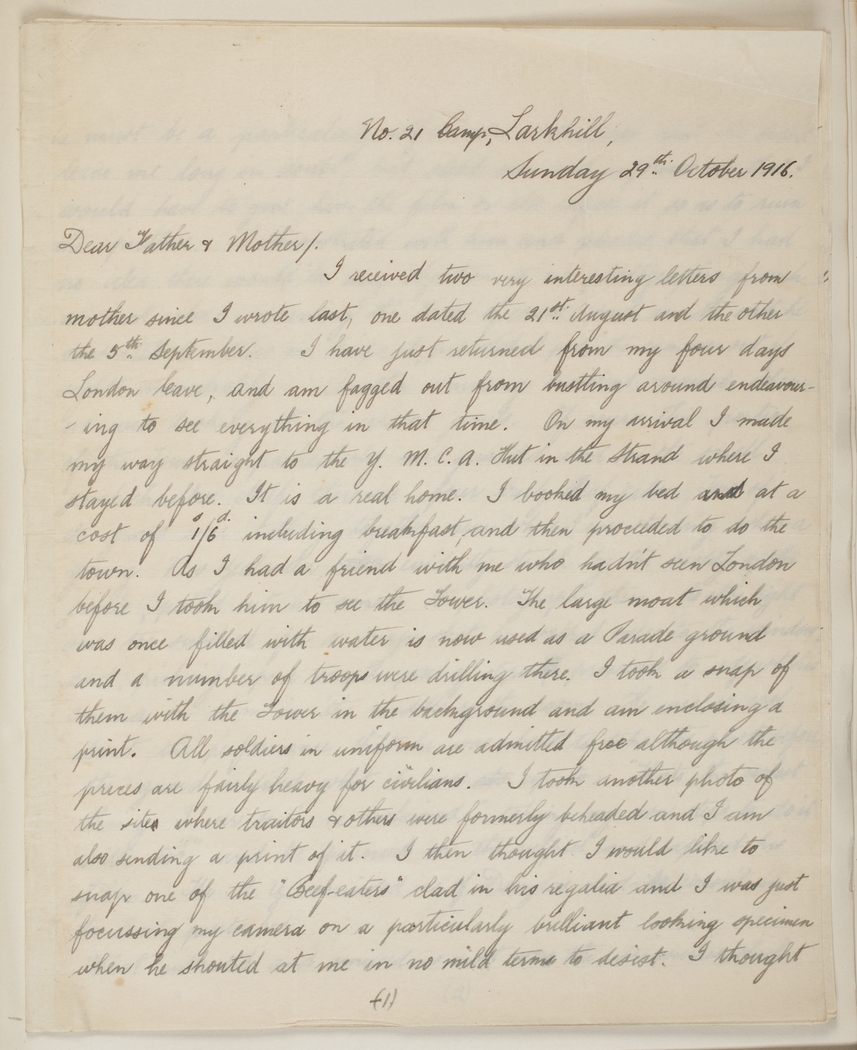 No. 21 Camp, Larkhill,
Sunday 29th. October 1916.
Dear Father & Mother/.
I received two very interesting letters from
mother since I wrote last, one dated the 21st. August and the other
the 5th. September. I have just returned from my four days
London leave, and am fagged out from bustling around endeavour-
-ing to see everything in that time. On my arrival I made
my way straight to the Y. M. C. A. Hut in the Strand where I
stayed before. It is a real home. I booked my bed and at a
cost of 1s/6d. including breakfast and then proceeded to do the
town. As I had a friend with me who hadn't seen London
before I took him to see the Tower. The large moat which
was once filled with water is now used as a Parade ground
and a number of troops were drilling there. I took a snap of
them with the Tower in the background and am enclosing a
print. All soldiers in uniform are admitted free although the
prices are fairly heavy for civilians. I took another photo of
the site where traitors & others were formerly beheaded and I am
also sending a print of it. I then thought I would like to
snap one of the "Beef-eaters" clad in his regalia and I was just
focussing my camera on a particularly brilliant looking specimen
when he shouted at me in no mild terms to desist. I thought
(1)